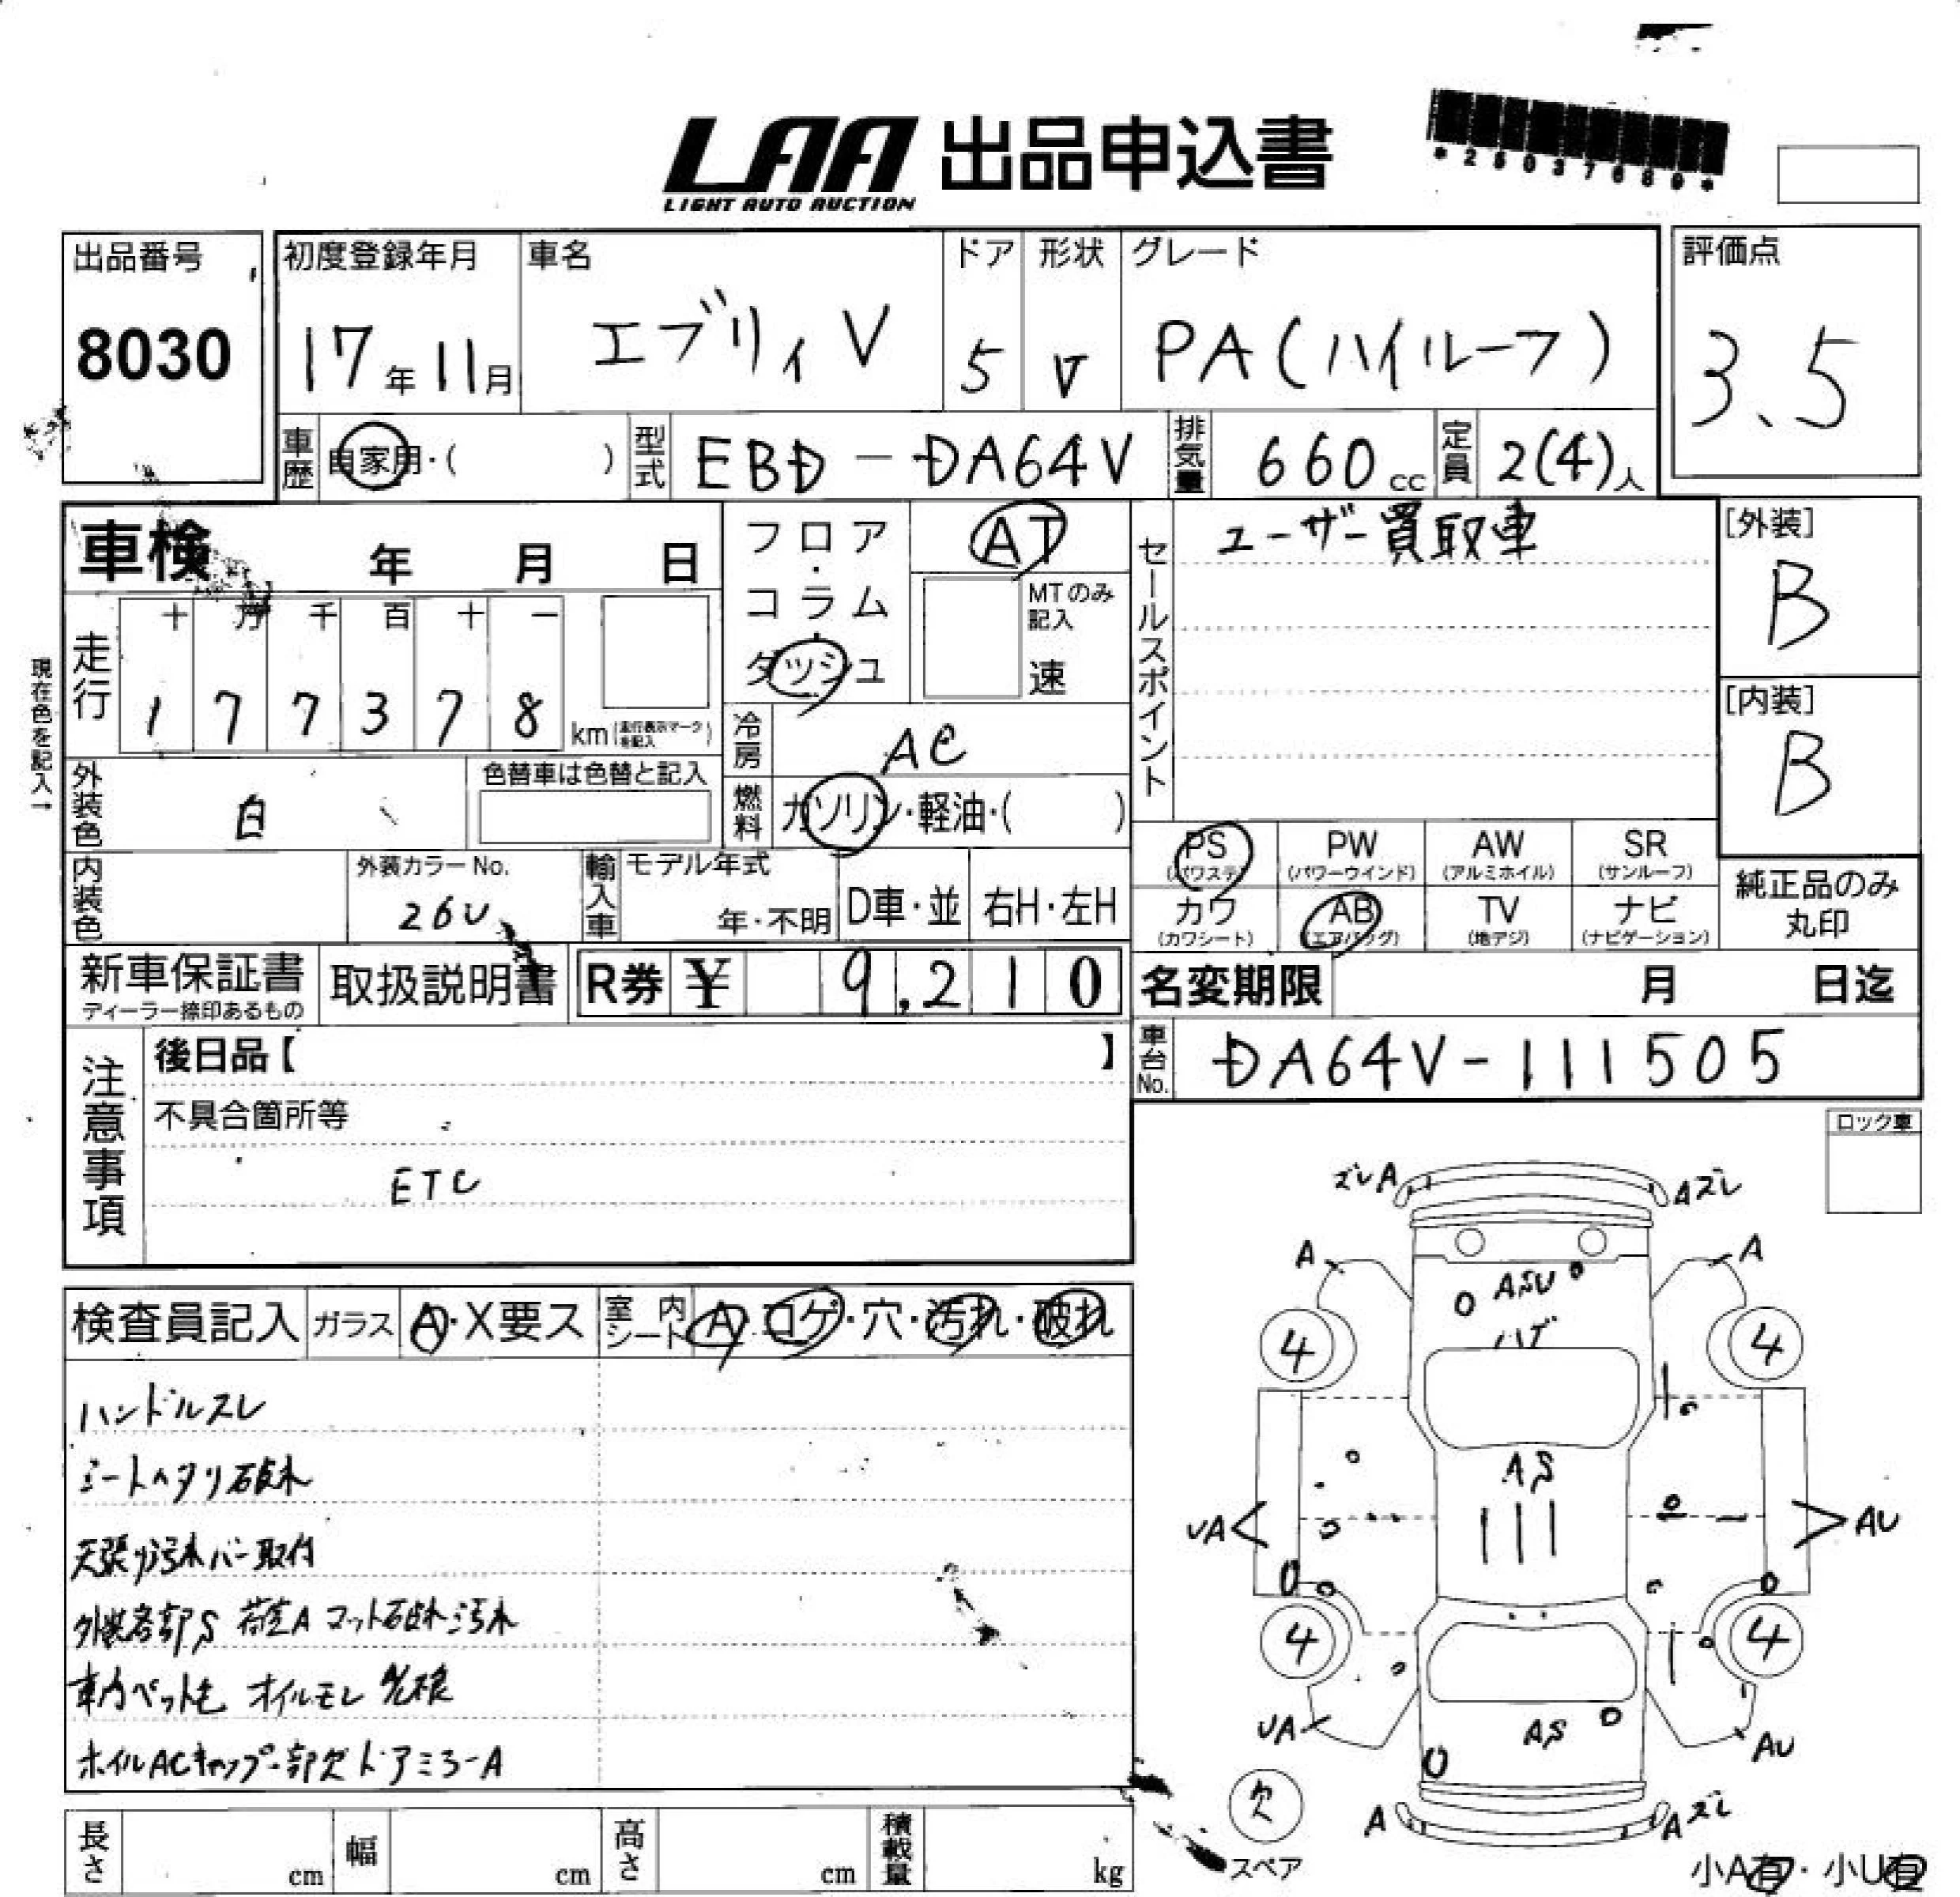 LAA 出品申込書
LIGHT AUTO AUCTION
出品番号 8030
初度登録年月 17年11月
車名 エブリィV
ドア 5
形状 V
グレード PA(ハイルーフ)
評価点 3.5
車歴 自家用・( )
型式 EBD-DA64V
排気量 660cc
定員 2(4)人
車検 年 月 日
フロア・コラム・ダッシュ
AT
MTのみ記入 速
セールスポイント ユーザー買取車
[外装] B
[内装] B
現在色を記入→
走行 十 万 千 百 十 一
1 7 7 3 7 8 km(走行表示マークを記入)
冷房 AC
外装色 白
色替車は色替と記入
燃料 ガソリン・軽油・( )
内装色
外装カラーNo. 26U
輸入車 モデル年式 年・不明 D車・並 右H・左H
PS (パワステ) PW (パワーウインド) AW (アルミホイル) SR (サンルーフ)
カワ (カワシート) AB (エアバッグ) TV (地デジ) ナビ (ナビゲーション)
純正品のみ丸印
新車保証書 ディーラー捺印あるもの
取扱説明書
R券 ¥ 9,210
名変期限 月 日迄
車台No. DA64V-111505
注意事項
後日品【 】
不具合箇所等
ETC
ロック車
検査員記入 ガラス A・X要ス 室内シート A・コゲ・穴・汚れ・破れ
ハンドルスレ
シートヘタリ破れ
天張り汚れバー取付
外装各部S 荷室A マット破れ汚れ
車内ペット毛 オイルモレ
ホイルACキャップ一部欠 ドアミラーA
ズレA Aズレ
A A
ASU
ハゲ
4 4
AS
UA AU
4 4
UA AU
AS
欠
スペア
A Aズレ
長さ cm 幅 cm 高さ cm 積載量 kg
小A有・小U有